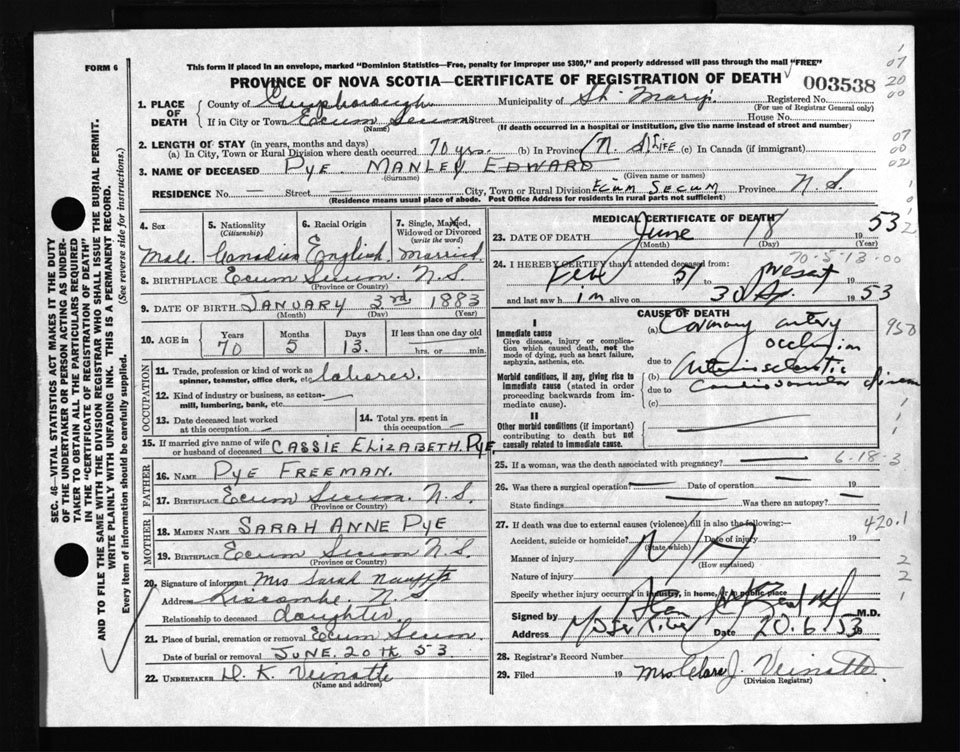 FORM 6
This form if placed in an envelope, marked "Dominion Statistics—Free, penalty for improper use $300," and properly addressed will pass through the mail "FREE"
PROVINCE OF NOVA SCOTIA—CERTIFICATE OF REGISTRATION OF DEATH
003538
1. PLACE OF DEATH
County of Guysborough Municipality of St. Mary's Registered No.
(For use of Registrar General only)
If in City or Town Ecum Secum Street House No.
(Name) (If death occurred in a hospital or institution, give the name instead of street and number)
2. LENGTH OF STAY (in years, months and days)
(a) In City, Town or Rural Division where death occurred 70 yrs. (b) In Province (N.S.) LIFE (c) In Canada (if immigrant)
3. NAME OF DECEASED PYE. MANLEY EDWARD
(Surname) (Given name or names)
RESIDENCE No. — Street — City, Town or Rural Division ECUM SECUM Province N.S.
(Residence means usual place of abode. Post Office Address for residents in rural parts not sufficient)
4. Sex 5. Nationality 6. Racial Origin 7. Single, Married,
(Citizenship) Widowed or Divorced
(write the word)
Male Canadian English Married
8. BIRTHPLACE Ecum Secum. N.S
(Province or Country)
9. DATE OF BIRTH JANUARY 3rd 1883
(Month) (Day) (Year)
10. AGE in Years Months Days If less than one day old
70 5 13. hrs. or min.
OCCUPATION
11. Trade, profession or kind of work as
spinner, teamster, office clerk, etc laborer.
12. Kind of industry or business, as cotton-
mill, lumbering, bank, etc.
13. Date deceased last worked at this occupation
14. Total yrs. spent in this occupation
15. If married give name of wife
or husband of deceased CASSIE ELIZABETH. PYE.
FATHER
16. NAME PYE FREEMAN.
17. BIRTHPLACE Ecum Secum. N.S.
(Province or Country)
MOTHER
18. MAIDEN NAME SARAH ANNE PYE
19. BIRTHPLACE Ecum Secum N.S.
(Province or Country)
20. Signature of informant Mrs Sarah
Address Liscombe. N.S.
Relationship to deceased daughter
21. Place of burial, cremation or removal Ecum Secum.
Date of burial or removal JUNE. 20th 53
22. UNDERTAKER D. K. Veinotte
(Name and address)
MEDICAL CERTIFICATE OF DEATH
23. DATE OF DEATH June 18 1953
(Month) (Day) (Year)
70-5-13-00
24. I HEREBY CERTIFY that I attended deceased from:
Feb 51 present
and last saw him alive on 30 Ap. 1953
CAUSE OF DEATH
I
Immediate cause
Give disease, injury or complication which caused death, not the mode of dying, such as heart failure, asphyxia, asthenia, etc.
(a) Coronary artery
occlusion
due to
Morbid conditions, if any, giving rise to immediate cause (stated in order proceeding backwards from immediate cause).
(b) Arteriosclerotic
Cardiovascular disease
due to
(c)
II
Other morbid conditions (if important) contributing to death but not causally related to immediate cause.
25. If a woman, was the death associated with pregnancy?
6-18-3
26. Was there a surgical operation? Date of operation 19
State findings Was there an autopsy?
27. If death was due to external causes (violence) fill in also the following:—
420.1
Accident, suicide or homicide? Date of injury 19
(State which)
Manner of injury
(How sustained)
Nature of injury
Specify whether injury occurred in industry, in home, or in public place
Signed by M.D.
Address Date 20.6.53
28. Registrar's Record Number
29. Filed 19 Mrs Clare J. Veinotte.
(Division Registrar)
SEC. 46—VITAL STATISTICS ACT MAKES IT THE DUTY
OF THE UNDERTAKER OR PERSON ACTING AS UNDER-
TAKER TO OBTAIN ALL THE PARTICULARS REQUIRED
IN THE "CERTIFICATE OF REGISTRATION OF DEATH"
AND TO FILE THE SAME WITH THE DIVISION REGISTRAR WHO SHALL ISSUE THE BURIAL PERMIT.
WRITE PLAINLY WITH UNFADING INK. THIS IS A PERMANENT RECORD.
Every item of information should be carefully supplied. (See reverse side for instructions.)